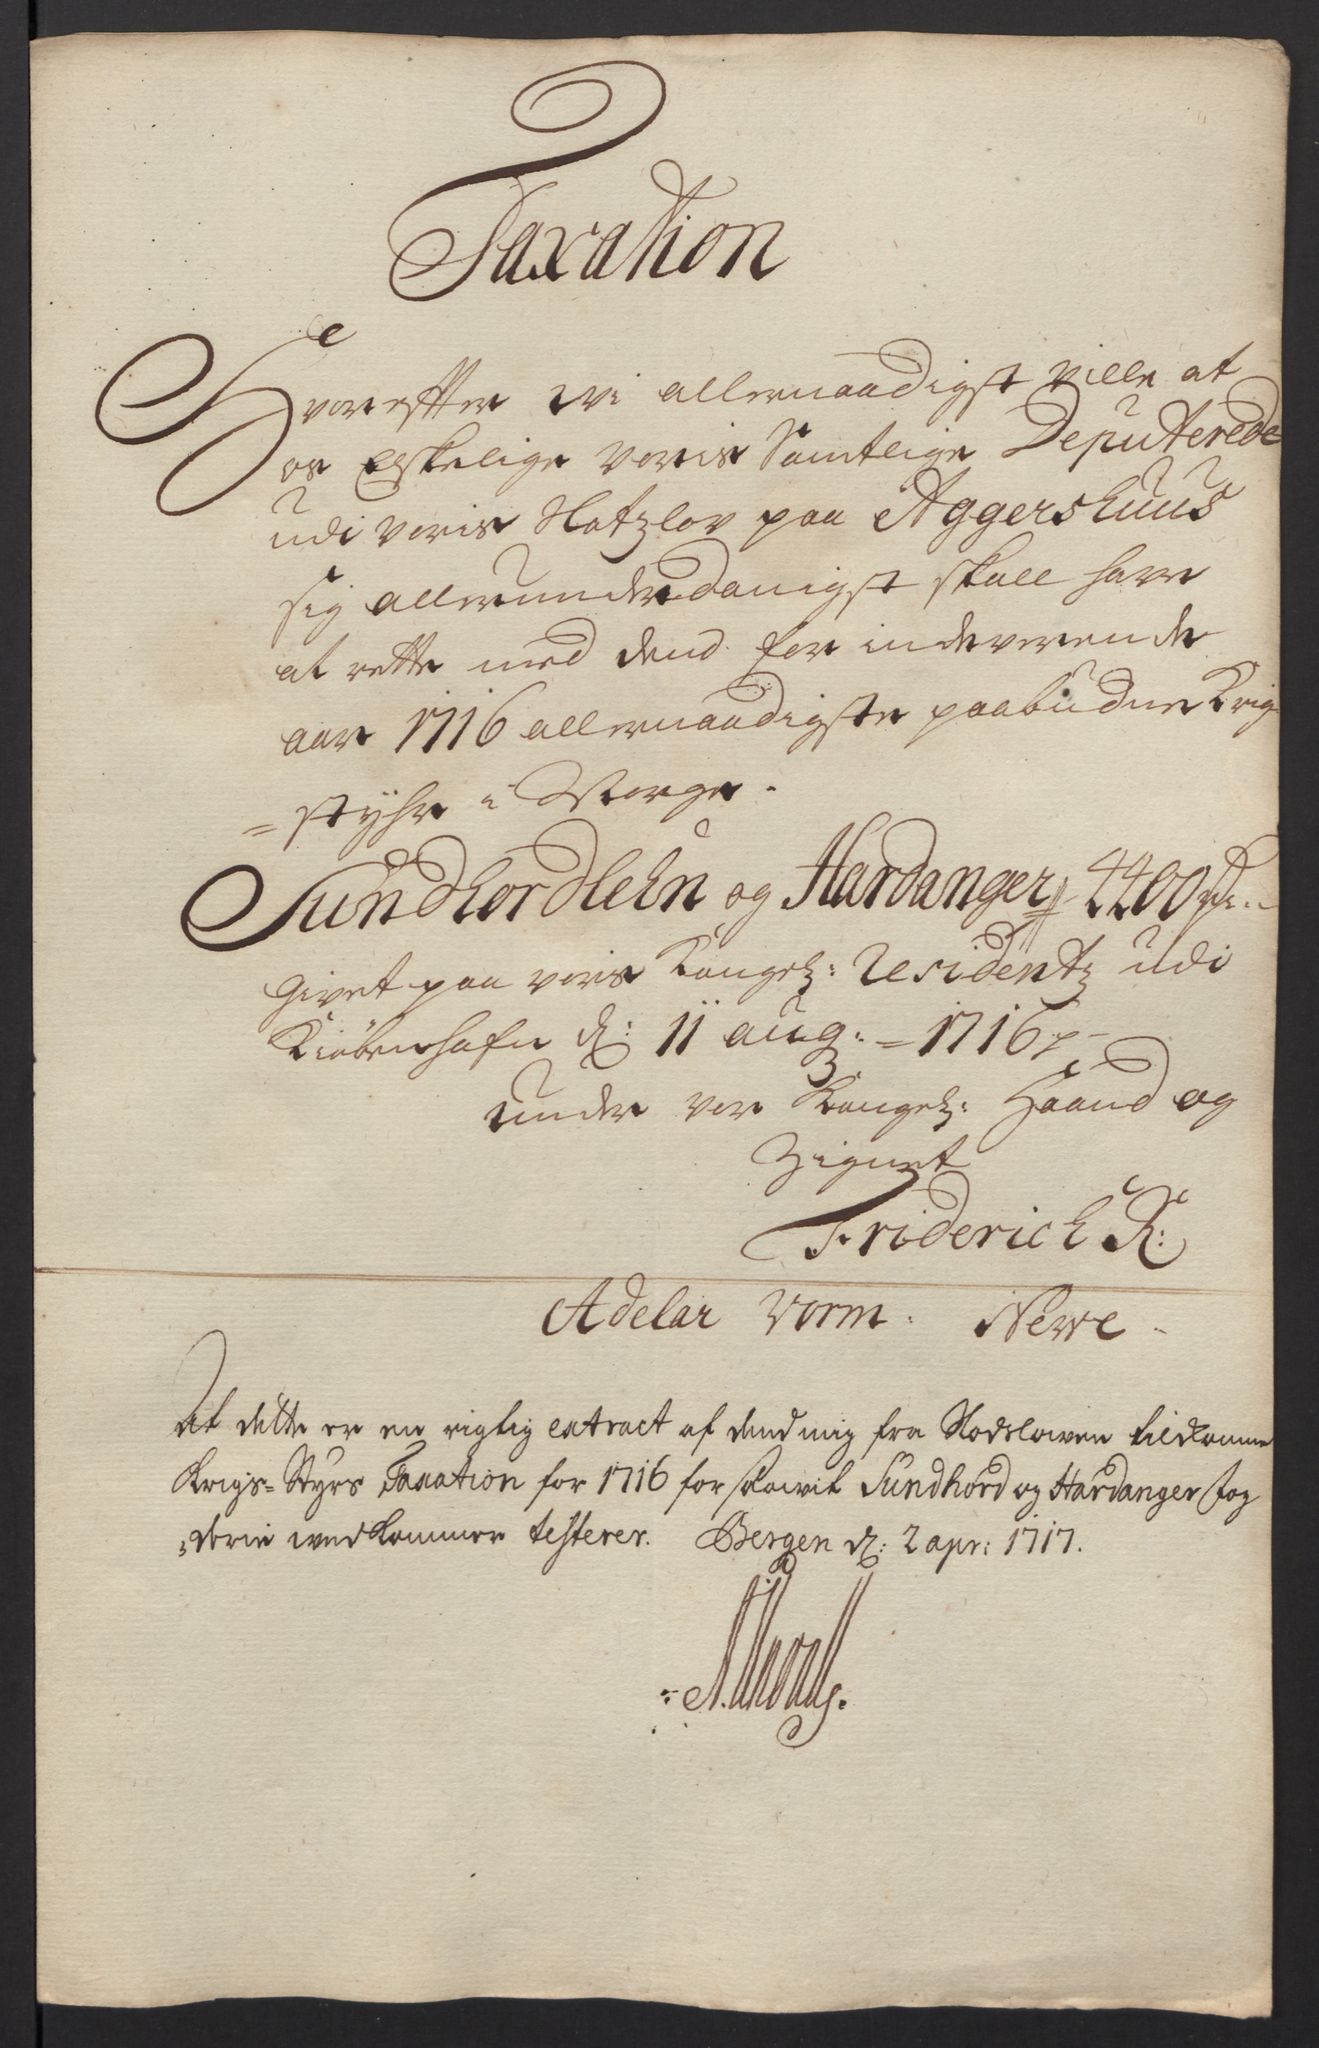 Taxation
Hvorefter Wi allernaadigst Ville at
os Elskelige Voris Samtlige Deputerede
udi Voris Slotzlov paa Aggershuus
sig allerunderdanigst skall have
at rette med dend for indeverende
aar 1716 allernaadigste paabudne Krig
= styhr i Norge.
Sundhordlehn og Hardanger 4400
Givet paa voris Kongel: Residentz udi
Kiøbenhafn d: 11 aug: = 1716
under vor Kongel: Haand og
Zignet
Friderich R:
Adelar Vorm. Neve
At dette er en rigtig extract af dend mig fra Slodslowen tilkomne
Krigs= Styrs Taxation for 1716 for saawit Sundhord og Hardanger fog
=derie wedkommer testerer. Bergen d: 2 apr: 1717.